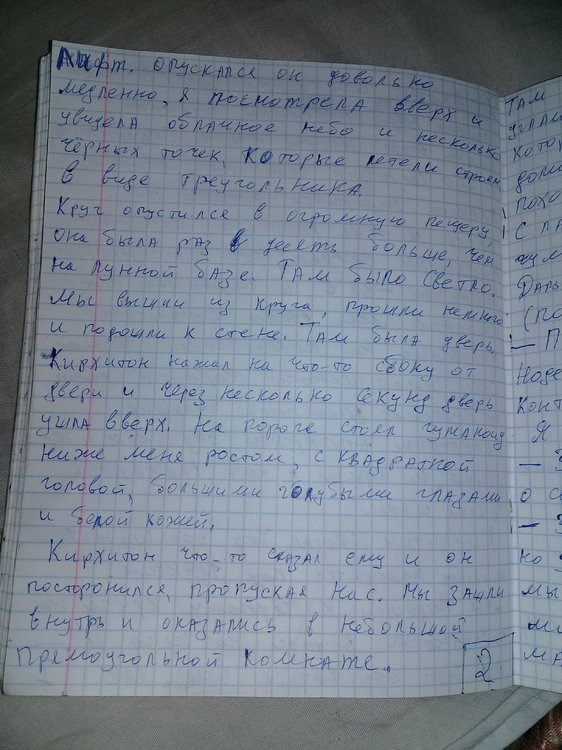 Лифт. Опускался он довольно
медленно, я посмотрела вверх и
увидела облачное небо и несколько
чёрных точек, которые летели строем
в виде треугольника.
Круг опустился в огромную пещеру,
она была раз в десять больше, чем
на лунной базе. Там было светло.
Мы вышли из круга, прошли немного
и подошли к стене. Там была дверь.
Кирхитон нажал на что-то сбоку от
двери и через несколько секунд дверь
ушла вверх. На пороге стоял гуманоид
ниже меня ростом, с квадратной
головой, большими голубыми глазами
и белой кожей.
Кирхитон что-то сказал ему и он
посторонился, пропуская нас. Мы зашли
внутрь и оказались в небольшой
прямоугольной комнате.
23
Там
углам
С
(по
— П
Я
о с
но
мы
ма